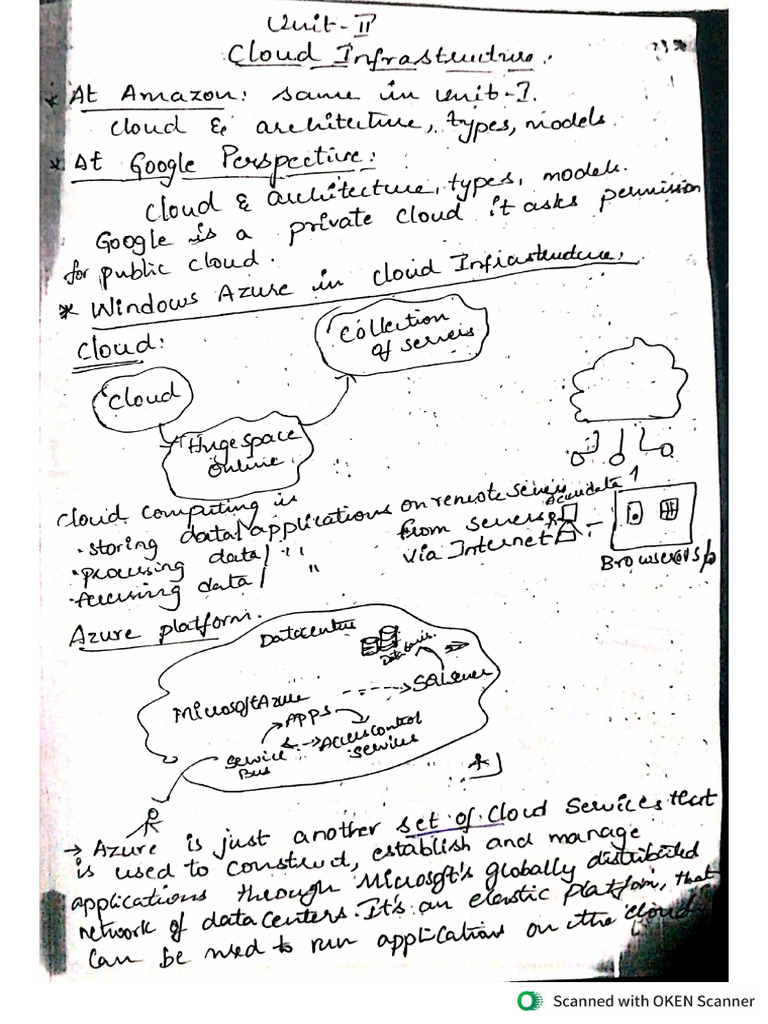 Unit-II
Cloud Infrastructure.
* At Amazon: same in unit-I.
Cloud & architecture, types, models
* At Google Perspective:
Cloud & architecture, types, models.
Google is a private cloud it asks permission
for public cloud.
* Windows Azure in cloud Infrastructure.
Cloud:
Collection
of servers
Cloud
Huge space
online
Cloud Computing is
• storing data/applications on remote servers
• processing data/ " from servers
• Accessing data/ " via Internet
Access data
Browser
Azure platform.
Datacentre
Microsoft Azure
SQL server
APPS
Service
Bus
Access Control
Services
→ Azure is just another set of Cloud Services that
is used to construct, establish and manage
applications through Microsoft's globally distributed
network of data Centers. It's an elastic platform, that
can be used to run applications on the cloud
Scanned with OKEN Scanner